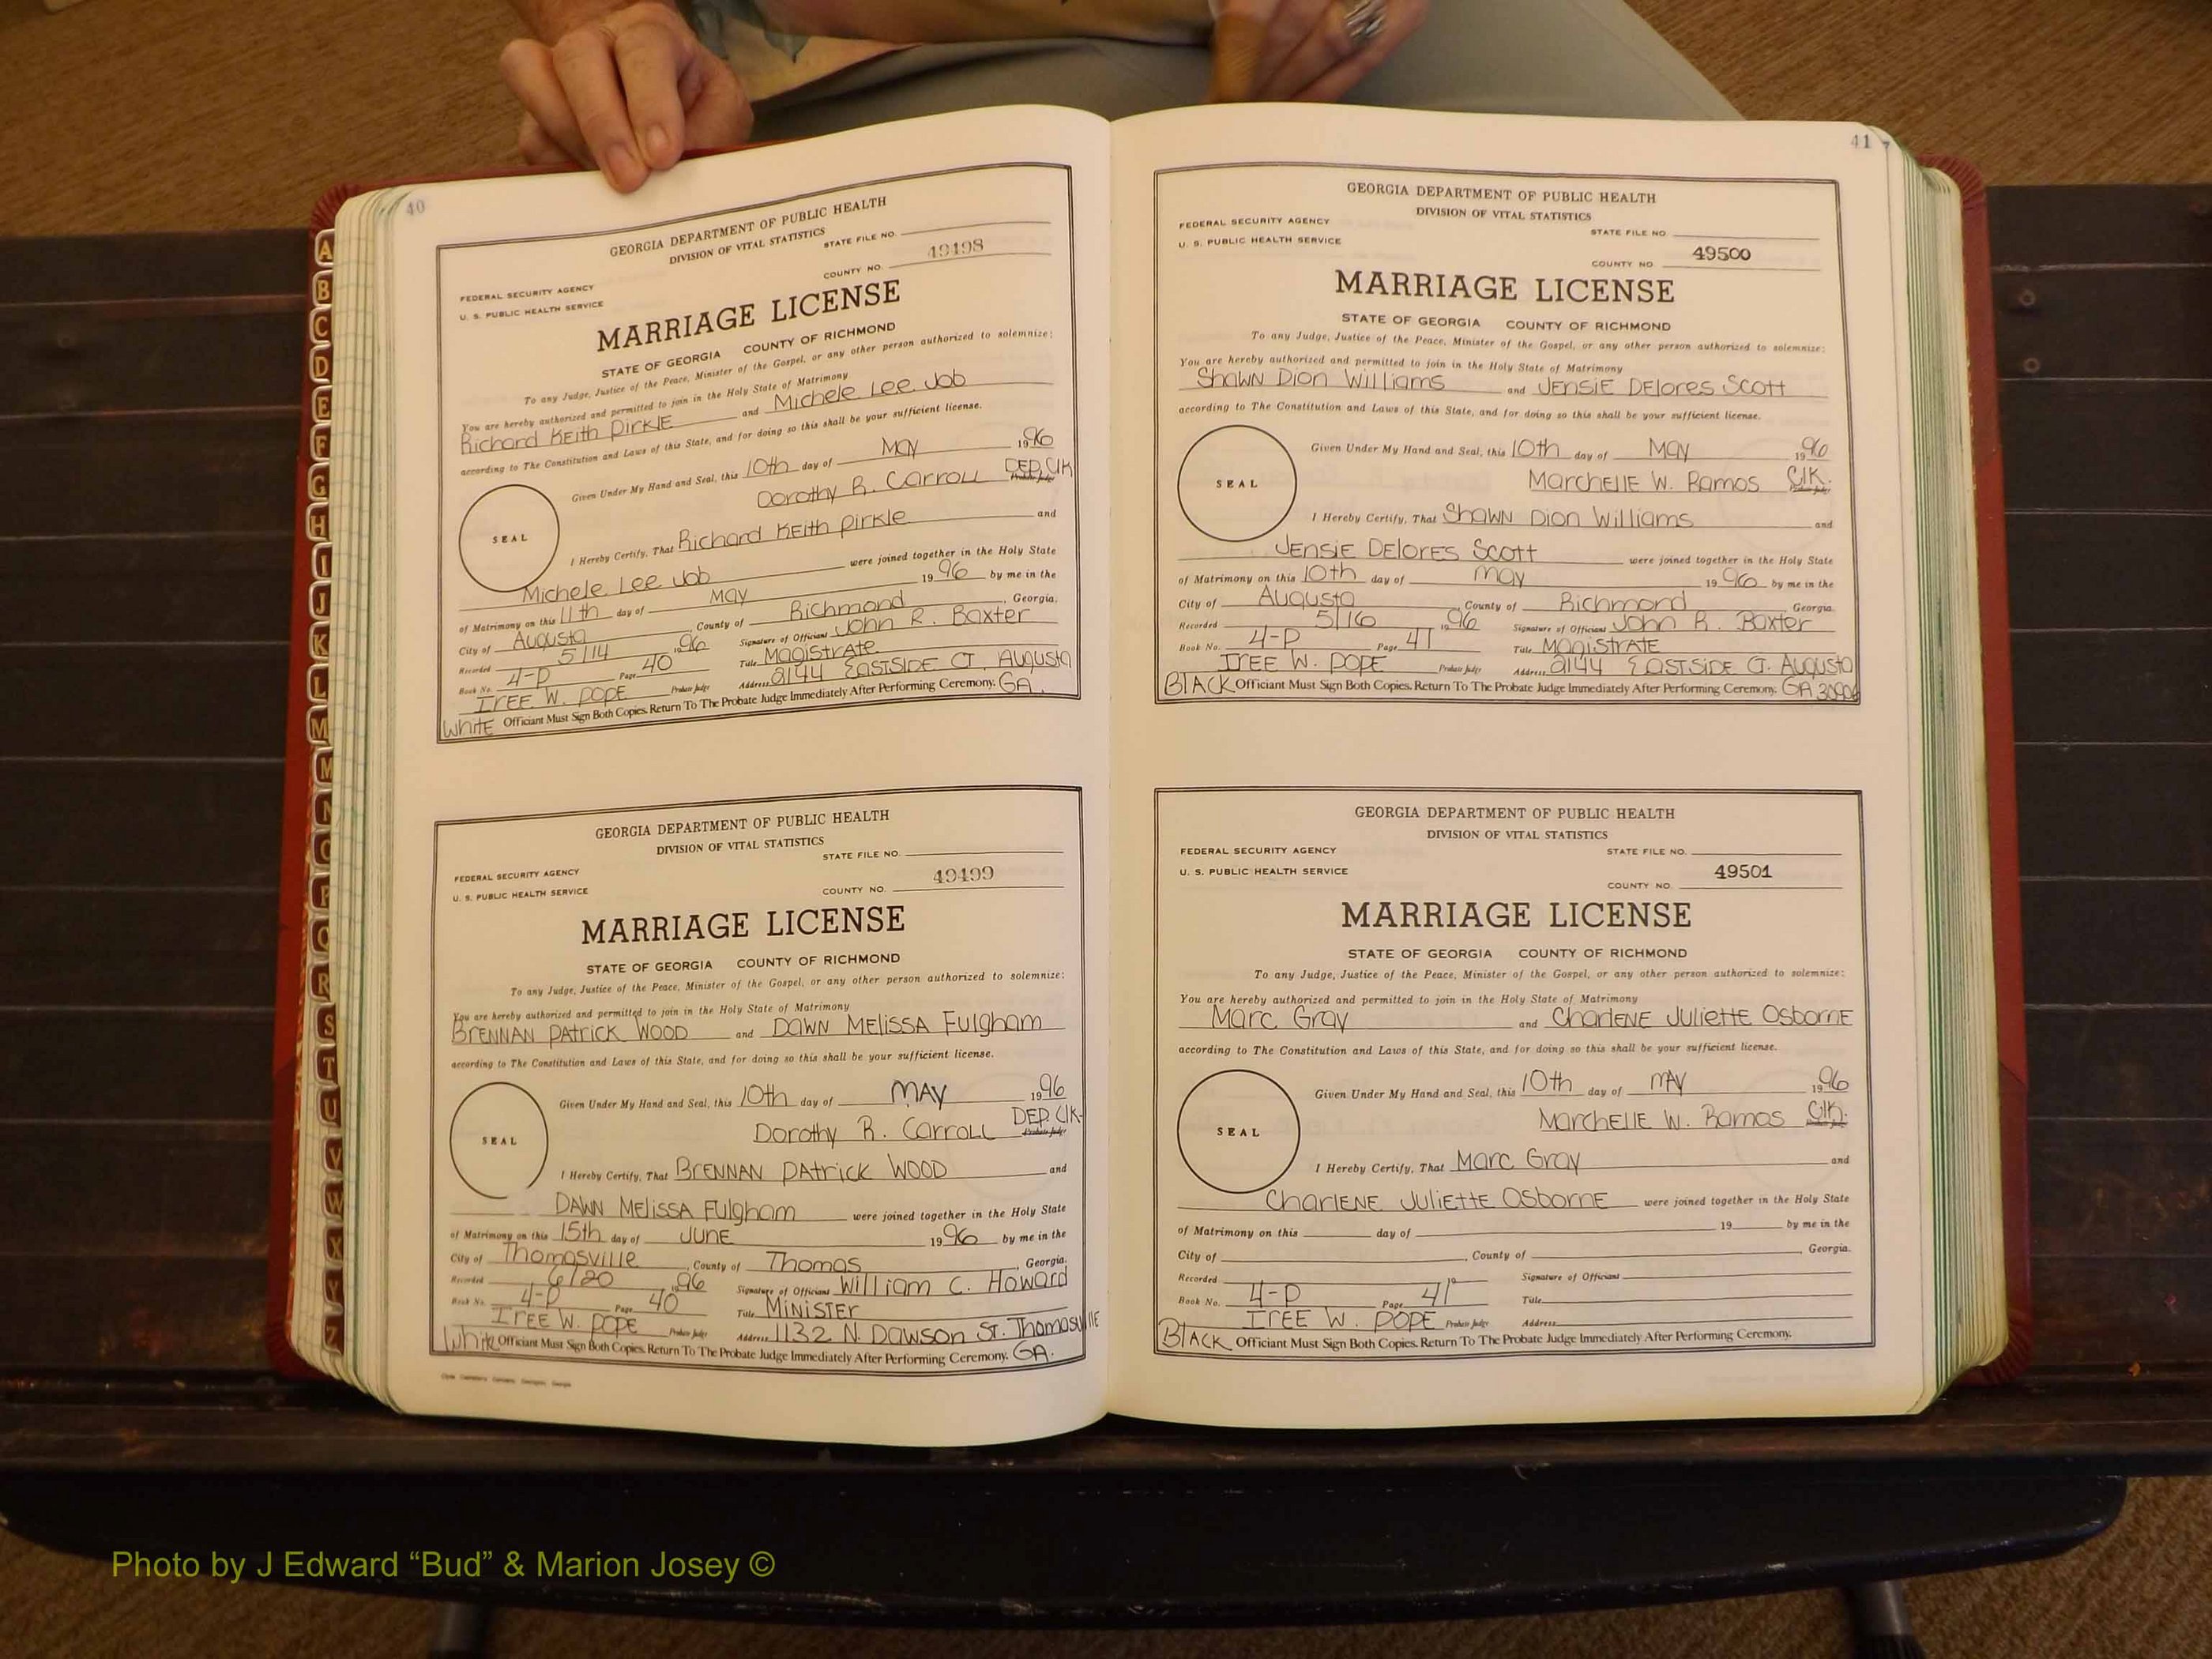 40
GEORGIA DEPARTMENT OF PUBLIC HEALTH
DIVISION OF VITAL STATISTICS
STATE FILE NO.
FEDERAL SECURITY AGENCY
U. S. PUBLIC HEALTH SERVICE
COUNTY NO. 49498
MARRIAGE LICENSE
STATE OF GEORGIA COUNTY OF RICHMOND
To any Judge, Justice of the Peace, Minister of the Gospel, or any other person authorized to solemnize:
You are hereby authorized and permitted to join in the Holy State of Matrimony
Richard Keith Pirkle and Michele Lee Job
according to The Constitution and Laws of this State, and for doing so this shall be your sufficient license.
Given Under My Hand and Seal, this 10th day of May 1996
Dorothy R. Carroll DEP. Clk Probate Judge
SEAL
I Hereby Certify, That Richard Keith Pirkle and
Michele Lee Job were joined together in the Holy State
of Matrimony on this 11th day of May 1996 by me in the
City of Augusta County of Richmond, Georgia.
Recorded 5/14 1996 Signature of Officiant John R. Baxter
Book No. 4-P Page 40 Title Magistrate
IREE W. POPE Probate Judge Address 2144 EASTSIDE CT. Augusta
White Officiant Must Sign Both Copies. Return To The Probate Judge Immediately After Performing Ceremony. GA.
GEORGIA DEPARTMENT OF PUBLIC HEALTH
DIVISION OF VITAL STATISTICS
STATE FILE NO.
FEDERAL SECURITY AGENCY
U. S. PUBLIC HEALTH SERVICE
COUNTY NO. 49499
MARRIAGE LICENSE
STATE OF GEORGIA COUNTY OF RICHMOND
To any Judge, Justice of the Peace, Minister of the Gospel, or any other person authorized to solemnize:
You are hereby authorized and permitted to join in the Holy State of Matrimony
BRENNAN PATRICK WOOD and DAWN MELISSA Fulgham
according to The Constitution and Laws of this State, and for doing so this shall be your sufficient license.
Given Under My Hand and Seal, this 10th day of MAY 1996
Dorothy R. Carroll DEP. Clk. Probate Judge
SEAL
I Hereby Certify, That BRENNAN PATRICK WOOD and
DAWN MELISSA Fulgham were joined together in the Holy State
of Matrimony on this 15th day of JUNE 1996 by me in the
City of Thomasville, County of Thomas, Georgia.
Recorded 6/20 1996 Signature of Officiant William C. Howard
Book No. 4-P Page 40 Title MINISTER
IREE W. POPE Probate Judge Address 1132 N. DAWSON ST. Thomasville
White Officiant Must Sign Both Copies. Return To The Probate Judge Immediately After Performing Ceremony. GA.
41
GEORGIA DEPARTMENT OF PUBLIC HEALTH
DIVISION OF VITAL STATISTICS
FEDERAL SECURITY AGENCY
STATE FILE NO
U. S. PUBLIC HEALTH SERVICE
COUNTY NO 49500
MARRIAGE LICENSE
STATE OF GEORGIA COUNTY OF RICHMOND
To any Judge, Justice of the Peace, Minister of the Gospel, or any other person authorized to solemnize:
You are hereby authorized and permitted to join in the Holy State of Matrimony
Shawn Dion Williams and JENSIE DELORES SCOTT
according to The Constitution and Laws of this State, and for doing so this shall be your sufficient license.
Given Under My Hand and Seal, this 10th day of May 1996
Marchelle W. Ramos Clk. Probate Judge
SEAL
I Hereby Certify, That Shawn Dion Williams and
JENSIE DELORES SCOTT were joined together in the Holy State
of Matrimony on this 10th day of May 1996 by me in the
City of Augusta, County of Richmond, Georgia.
Recorded 5/16 1996 Signature of Officiant John R. Baxter
Book No. 4-P Page 41 Title MAGISTRATE
IREE W. POPE Probate Judge Address 2144 EASTSIDE CT. Augusta
BLACK Officiant Must Sign Both Copies. Return To The Probate Judge Immediately After Performing Ceremony. GA
GEORGIA DEPARTMENT OF PUBLIC HEALTH
DIVISION OF VITAL STATISTICS
FEDERAL SECURITY AGENCY
STATE FILE NO.
U. S. PUBLIC HEALTH SERVICE
COUNTY NO. 49501
MARRIAGE LICENSE
STATE OF GEORGIA COUNTY OF RICHMOND
To any Judge, Justice of the Peace, Minister of the Gospel, or any other person authorized to solemnize:
You are hereby authorized and permitted to join in the Holy State of Matrimony
Marc Gray and Charlene Juliette Osborne
according to The Constitution and Laws of this State, and for doing so this shall be your sufficient license.
Given Under My Hand and Seal, this 10th day of MAY 1996
Marchelle W. Ramos Clk. Probate Judge
SEAL
I Hereby Certify, That Marc Gray and
Charlene Juliette Osborne were joined together in the Holy State
of Matrimony on this day of 19 by me in the
City of , County of , Georgia.
Recorded 19 Signature of Officiant
Book No. 4-P Page 41 Title
IREE W. POPE Probate Judge Address
BLACK Officiant Must Sign Both Copies. Return To The Probate Judge Immediately After Performing Ceremony.
A
B
C
D
E
F
G
H
I
J
K
L
M
M
N
O
P
Q
R
S
T
U
V
W
X
Y
Z
Photo by J Edward “Bud” & Marion Josey ©